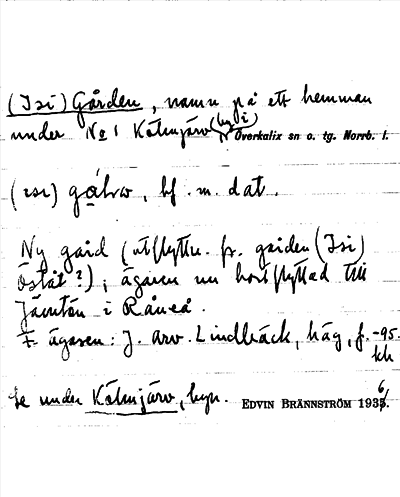 (Isi) Gården, namn på ett hemman
under No 1 Kälmjärv (by i) Överkalix sn o. tg. Norrb. l.
(ɪsɪ) , bf. m. dat.
Ny gård (utflyttn. fr. gården (Isi)
öståt?), ägaren nu bortflyttad till
Jämtön i Råneå.
F. ägaren: J. Arv. Lindbäck, häg, f. -95.
kh
Se under Kälmjärv, byn. EDVIN BRÄNNSTRÖM 1936.